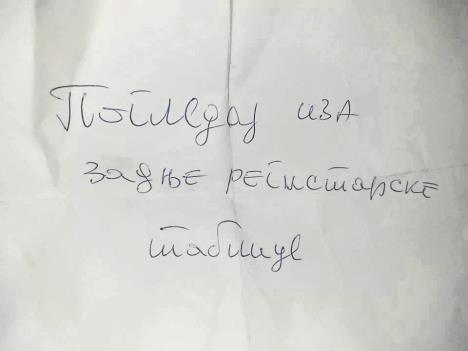 Погледај иза
задње регистарске
таблице